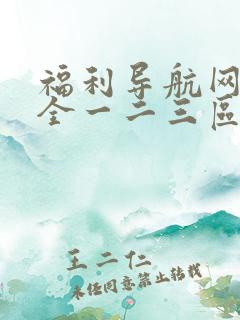 福利导航网
全一二三區
王二仁
未经同意禁止转载